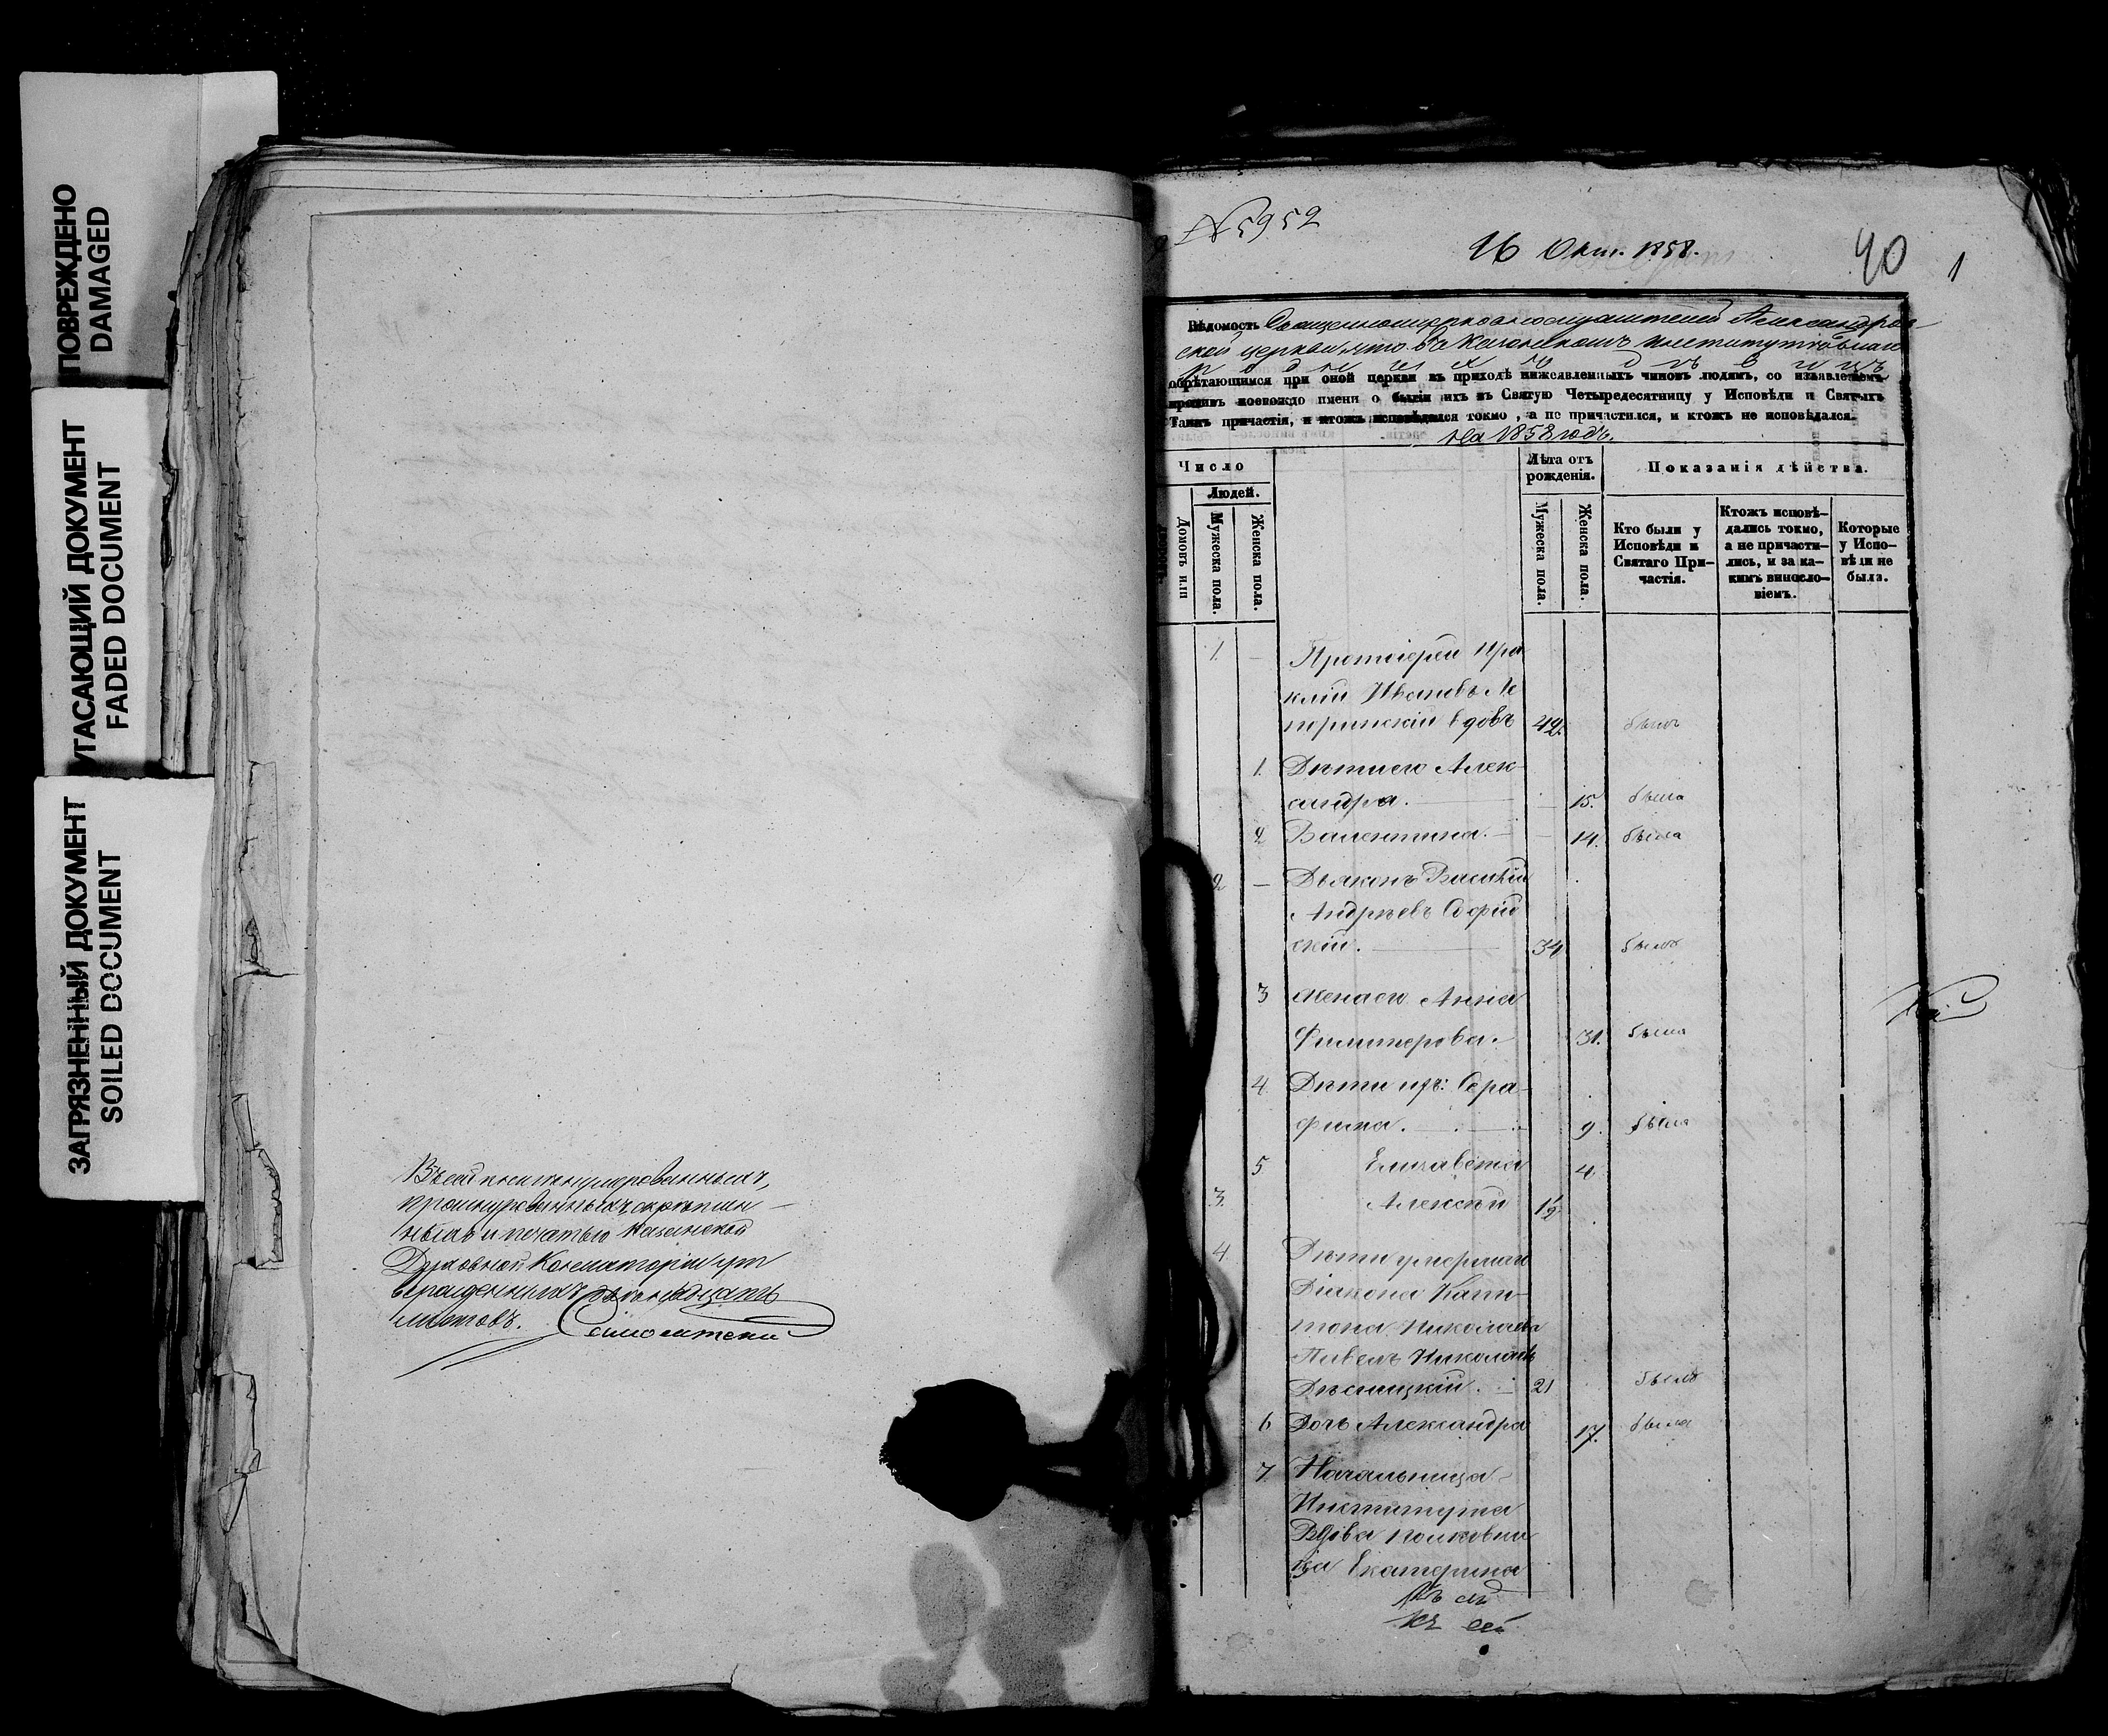 ПОВРЕЖДЕНО
DAMAGED
УГАСАЮЩИЙ ДОКУМЕНТ
FADED DOCUMENT
ЗАГРЯЗНЕННЫЙ ДОКУМЕНТ
SOILED DOCUMENT
Въ сей книгѣ нумерованныхъ,
прошнурованныхъ, скрѣплен-
ныхъ и печатью Казанской
Духовной Консисторіи ут
вержденныхъ
листовъ.
№ 5952
16 Окт. 1858.
40 1
Вѣдомость Священноцерковнослужителей Александров-
ской церкви что въ Казанскомъ институтѣ благ
р о д н ы х ъ д ѣ в и ц ъ
обрѣтающимся при оной церкви въ приходѣ нижеявленныхъ чиновъ людямъ, со изъявленіемъ
противъ коегождо имени о бытіи ихъ въ Святую Четыредесятницу у Исповѣди и Святыхъ
Таинъ причастія, и ктожъ исповѣдался токмо, а не причастился, и ктожъ не исповѣдался.
на 1858 годъ.
Число
Людей.
Домовъ или
Мужеска пола.
Женска пола.
Лѣта отъ
рожденія.
Мужеска пола.
Женска пола.
Показанія дѣйства.
Кто были у
Исповѣди и
Святаго При-
частія.
Ктожъ исповѣ-
дались токмо,
а не причасти-
лись, и за ка-
кимъ виносло-
віемъ.
Которые
у Испо-
вѣди не
были.
1. — Протоіерей Ира
клій Ивановъ
вдовъ 42. былъ
1. Дѣти его Алек
сандра. — 15. была
2 Валентина. — 14. была
2 — Дьяконъ Василій
Андреевъ Софій
скій. 34 былъ
3 Жена его Анна
31. была
4 Дѣти ихъ: Сера
фима. 9. была
5 Елизавета 4.
3. Алексѣй 1½
4 Дѣти умершаго
Діакона Капи-
тона Николаева
Павелъ Николаевъ
21 былъ
6 Дочь Александра 17. была
7 Начальница
Института
Вдова полковни
ца Екатерина